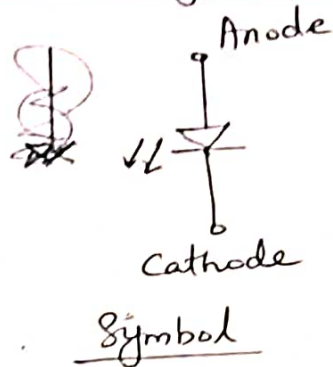 Anode
Cathode
Symbol